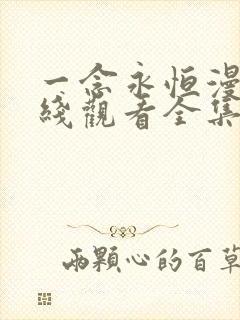 一念永恒漫
线觀看全集
兩顆心的百草